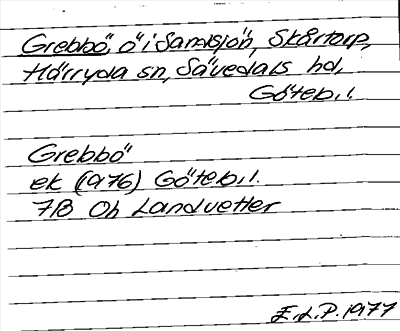 Grebbö, ö i Samsjön, Skårtorp,
Härryda sn, Sävedals hd,
Göteb.l.
Grebbö
ek (1976) Göteb.l.
7B Oh Landvetter
E.L.P. 1977